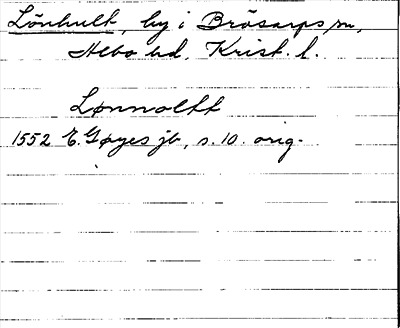 Lönhult, by i Brösarps sn,
Albo hd, Krist. l.
Lønnoltt
1552 E. Gøyes jb, s. 10. orig.